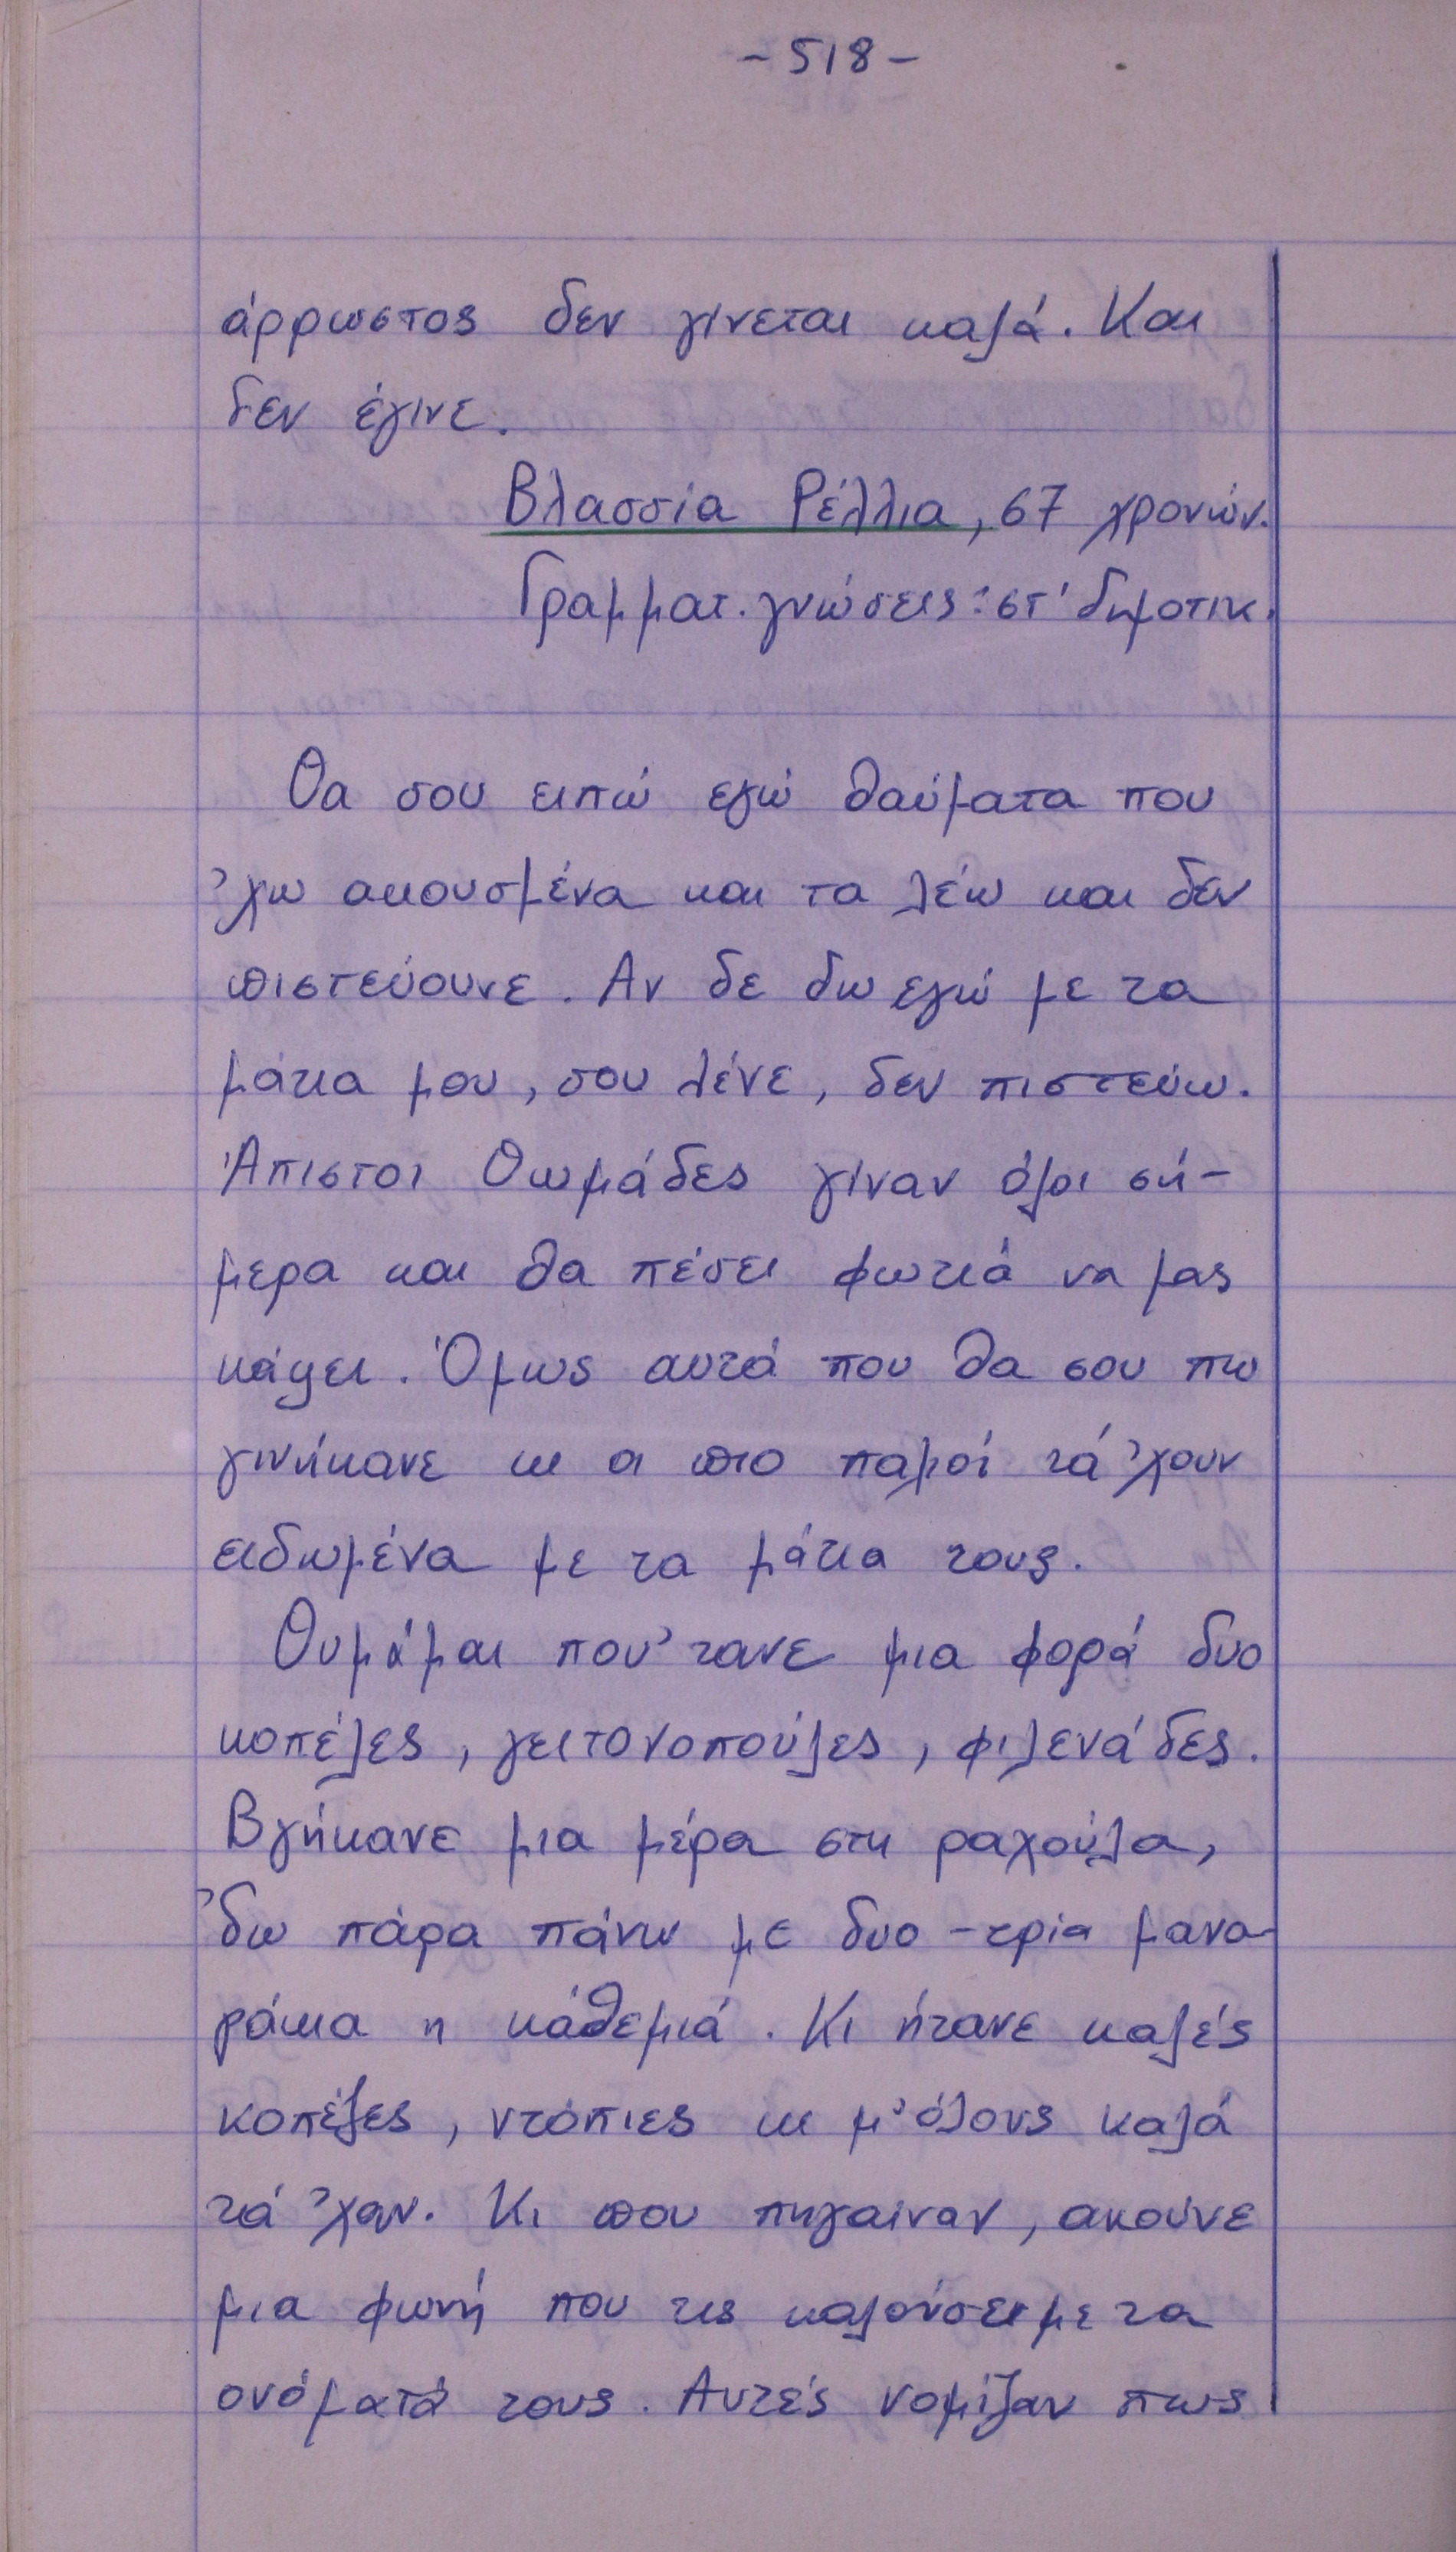 - 518 -
άρρωστος δεν γίνεται καλά. Και
δεν έγινε.
Βλασσία Ρέλλια, 67 χρονών.
Γραμματ. γνώσεις: στ' δημοτικ.
Θα σου ειπώ εγώ θαύματα που
'χω ακουσμένα και τα λέω και δεν
πιστεύουνε. Αν δε δω εγώ με τα
μάτια μου, σου λένε, δεν πιστεύω.
Άπιστοι Θωμάδες γίναν όλοι σή-
μερα και θα πέσει φωτιά να μας
κάψει. Όμως αυτά που θα σου πω
γινήκανε κι οι πιο παλιοί τά 'χουν
ειδωμένα με τα μάτια τους.
Θυμάμαι που 'τανε μια φορά δυο
κοπέλες, γειτονοπούλες, φιλενάδες.
Βγήκανε μια μέρα στη ραχούλα,
'δω πάρα πάνω με δυο - τρία μανα-
ράκια η κάθεμιά. Κι ήτανε καλές
κοπέλες, ντόπιες κι μ' όλους καλά
τά 'χαν. Κι που πηγαίναν, ακούνε
μια φωνή που τις καλούσει με τα
ονόματά τους. Αυτές νομίζαν πως